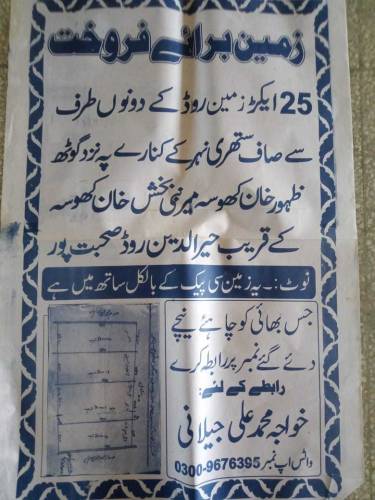 زمین برائے فروخت
25 ایکڑ زمین روڈ کے دونوں طرف
سے صاف ستھری نہر کے کنارے پہ نزد گوٹھ
ظہور خان کھوسہ میر نبی بخش خان کھوسہ
کے قریب حیرالدین روڈ صحبت پور
نوٹ:۔ یہ زمین سی پیک کے بالکل ساتھ میں ہے
جس بھائی کو چاہئے نیچے
دئے گئے نمبر پر رابطہ کرے
رابطے کے لئے:
خواجہ محمد علی جیلانی
واٹس اپ نمبر 0300-9676395